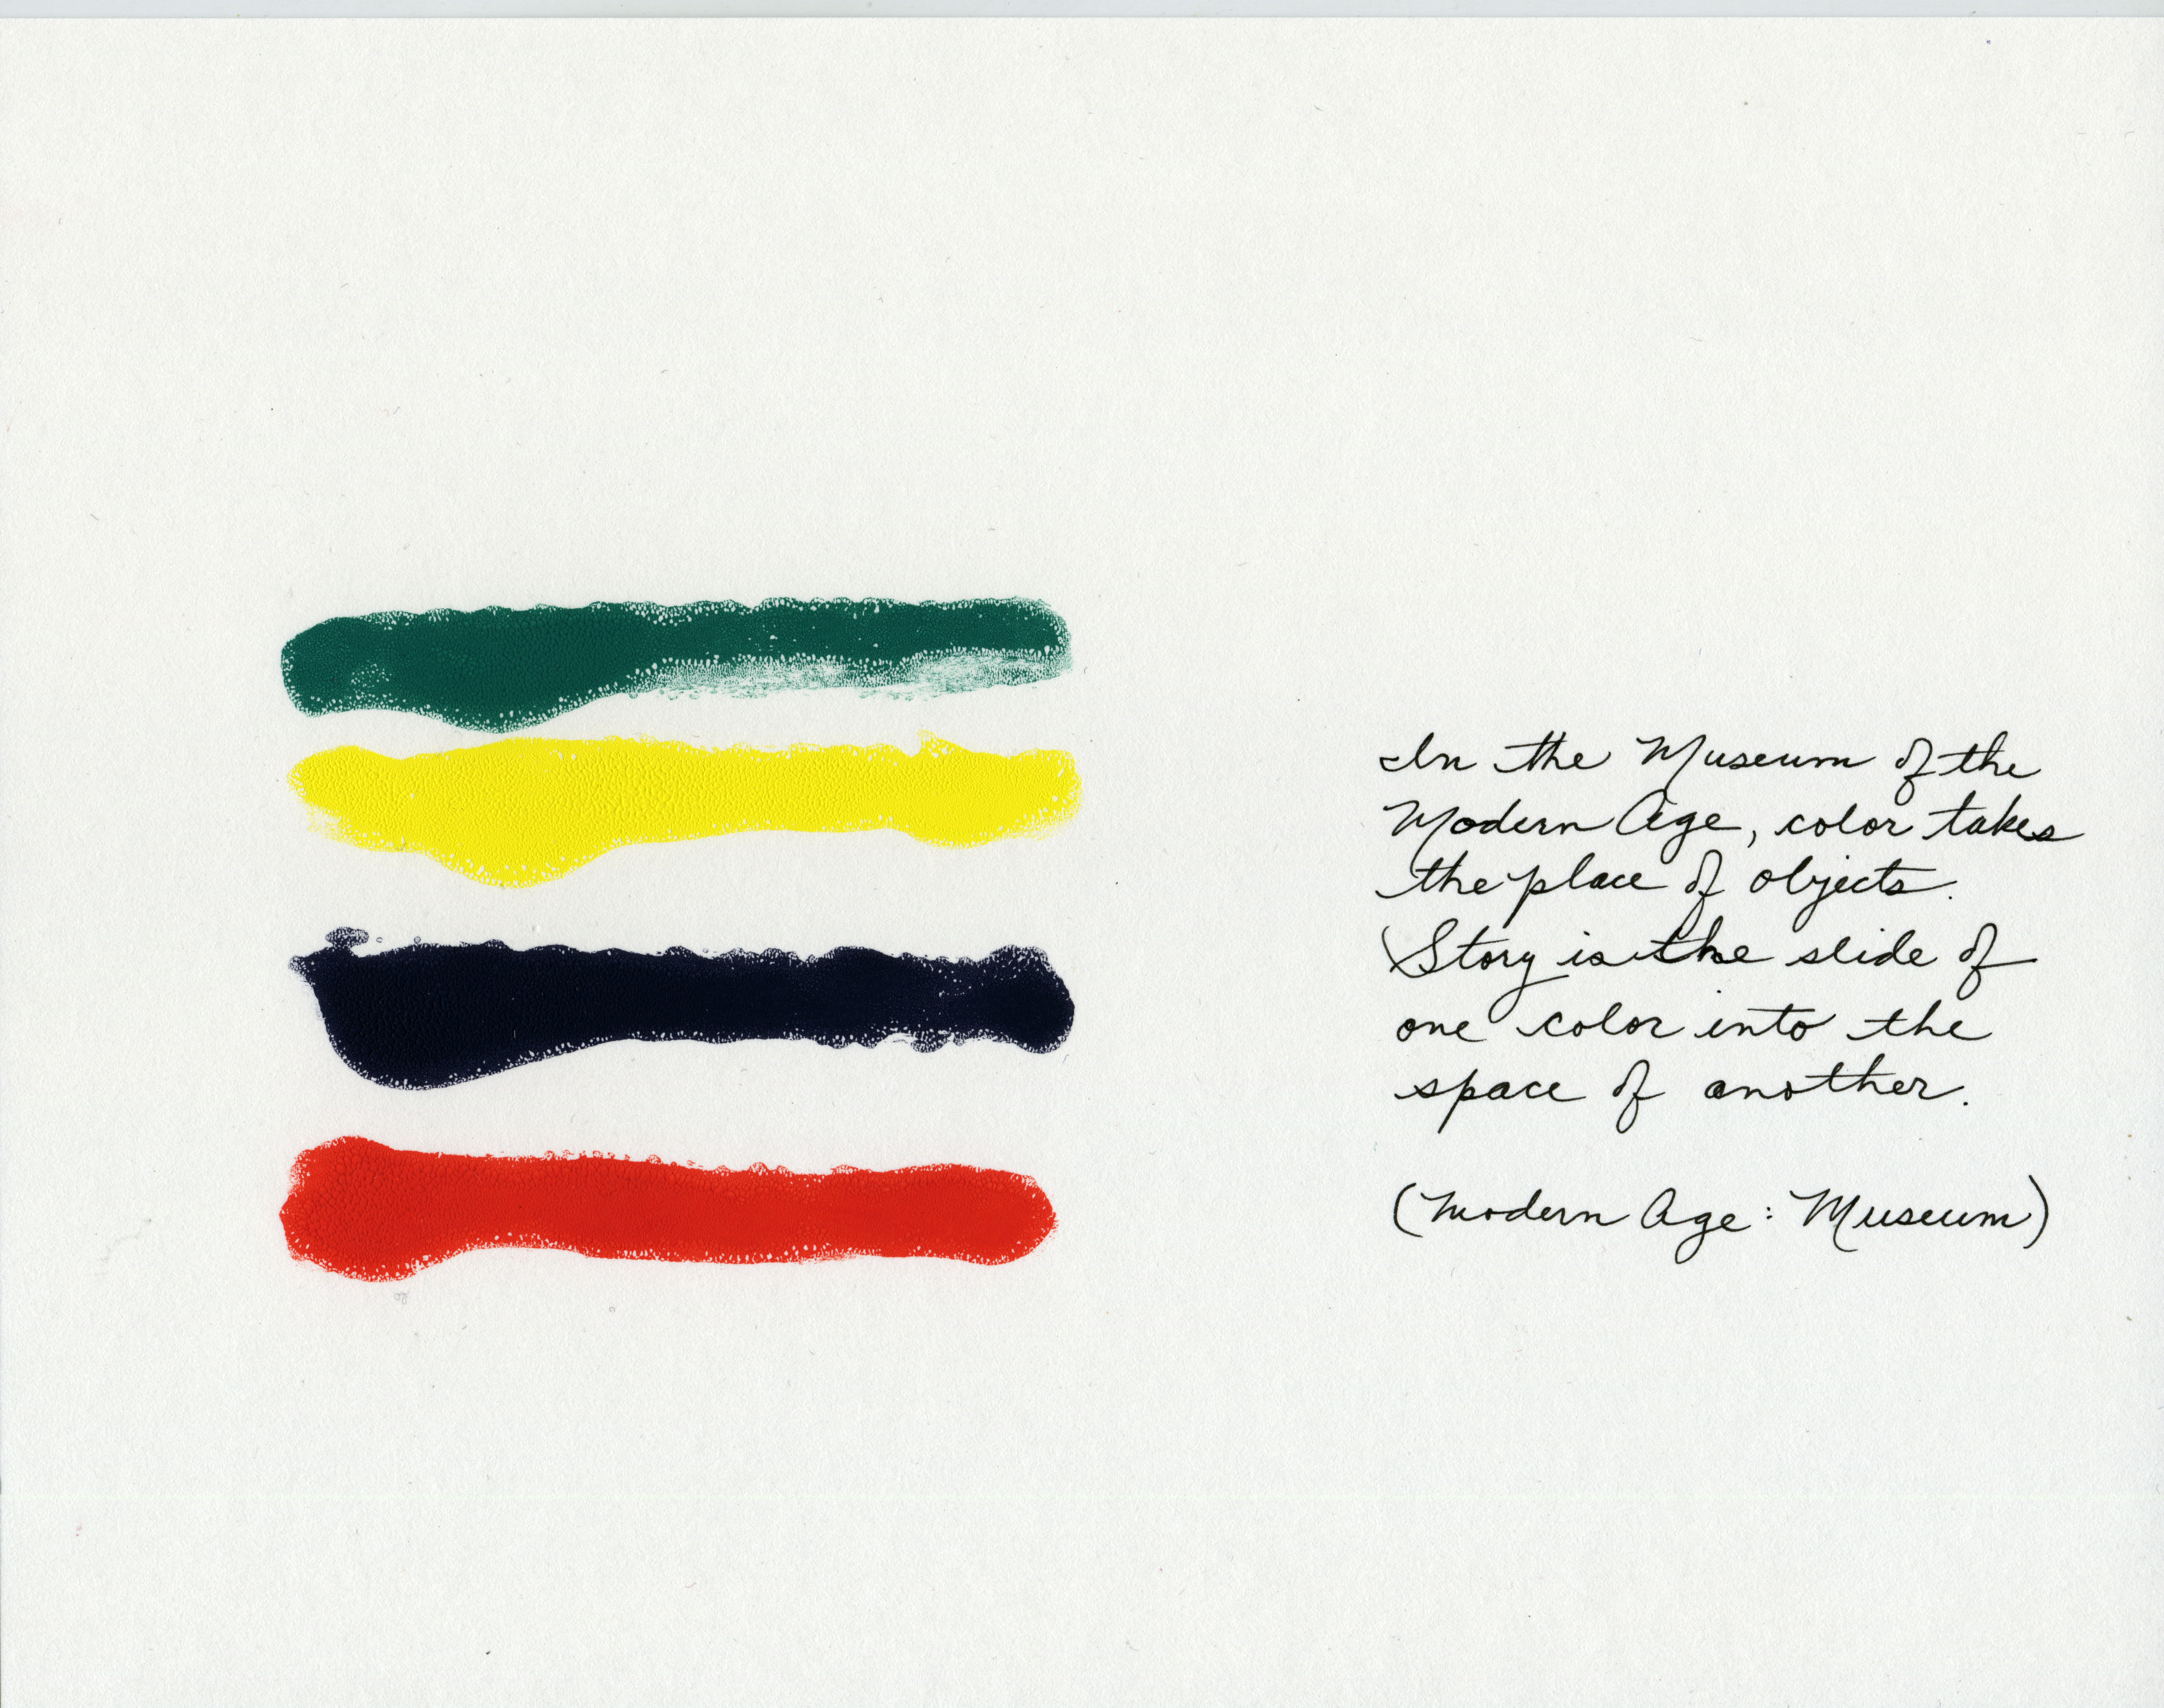 In the Museum of the
Modern Age, color takes
the place of objects.
Story is the slide of
one color into the
space of another.
(Modern Age: Museum)